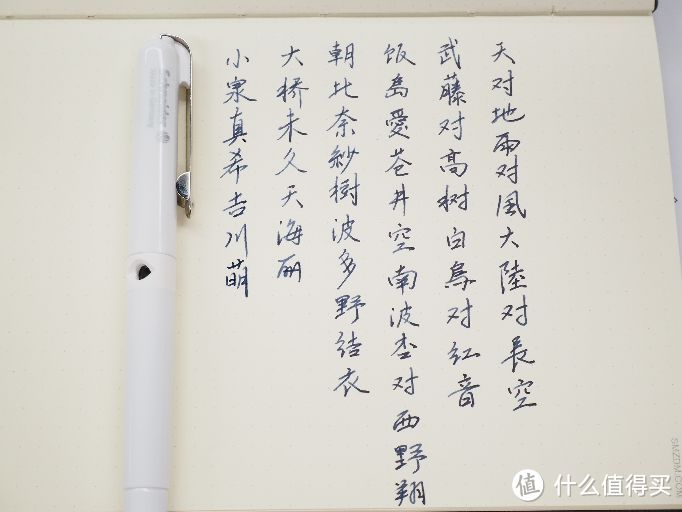 天对地雨对風大陸对長空
武藤对高树白鳥对紅音
饭島愛苍井空南波杏对西野翔
朝比奈紗樹波多野结衣
大桥未久天海丽
小泉真希吉川萌
值 什么值得买
SMZDM.COM